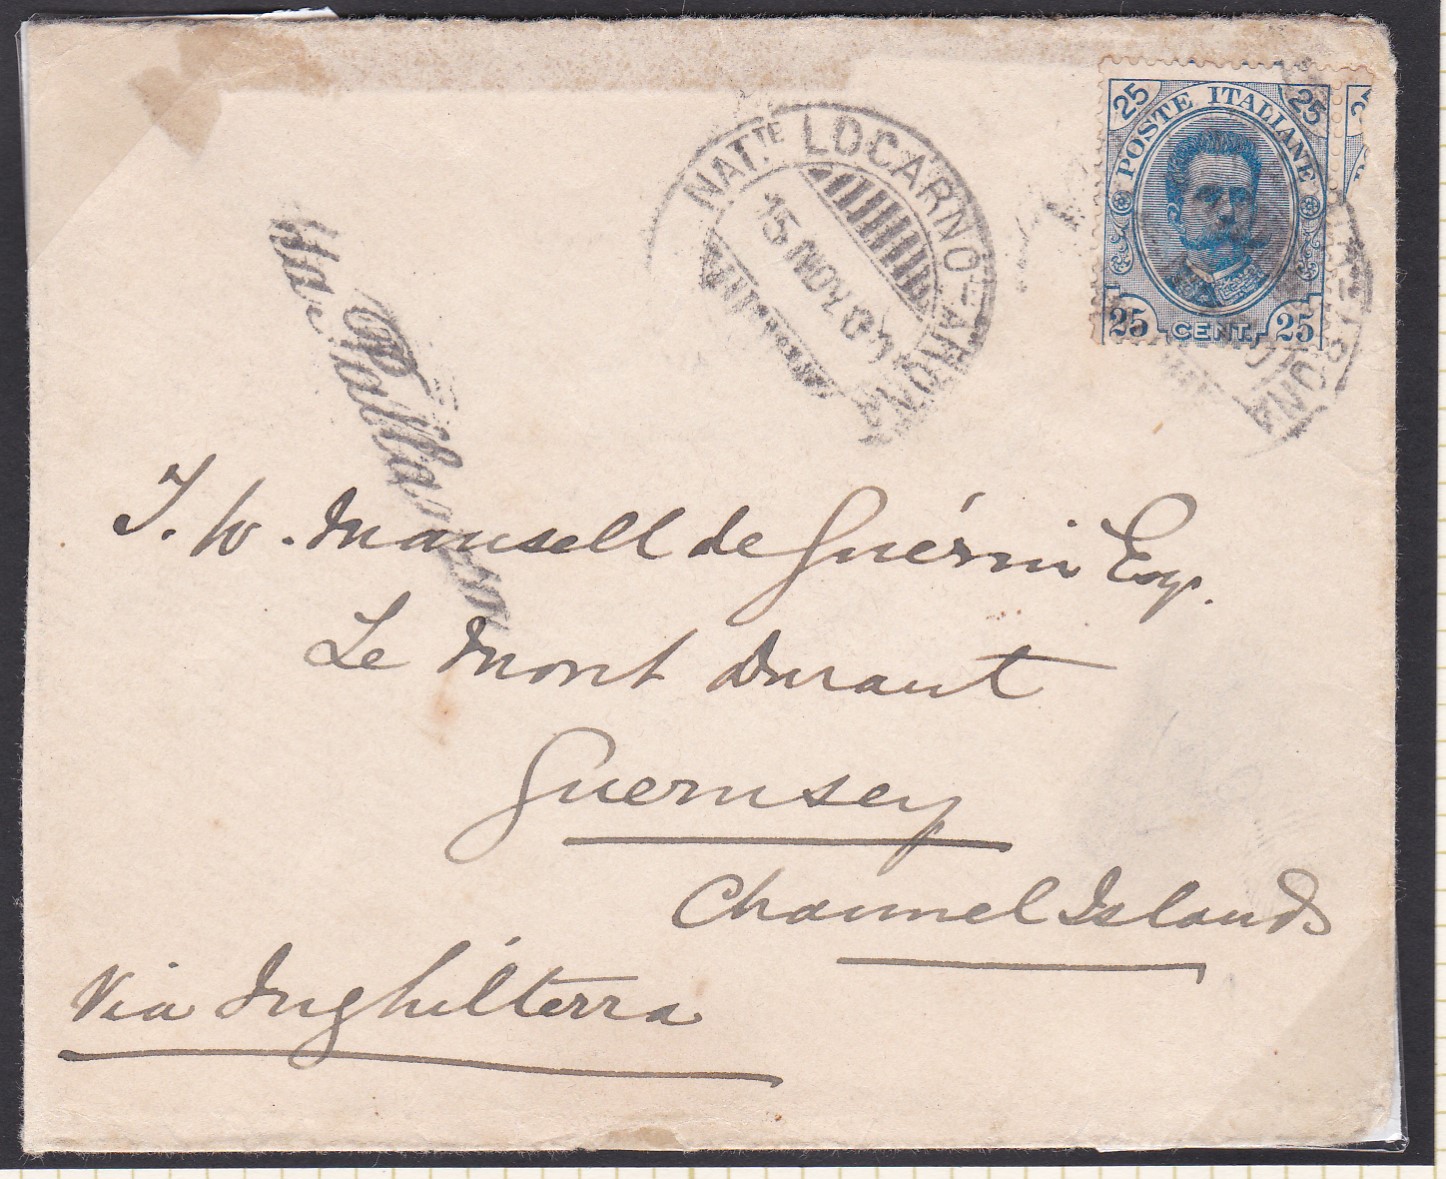 25 POSTE ITALIANE 25
25 CENT. 25
NAT.TE LOCARNO-ARONA
15 NOV. 01
Pallanza
T. W. Mansell de Guérin Esq.
Le Mont Durant
Guernsey
Channel Islands
Via Inghilterra